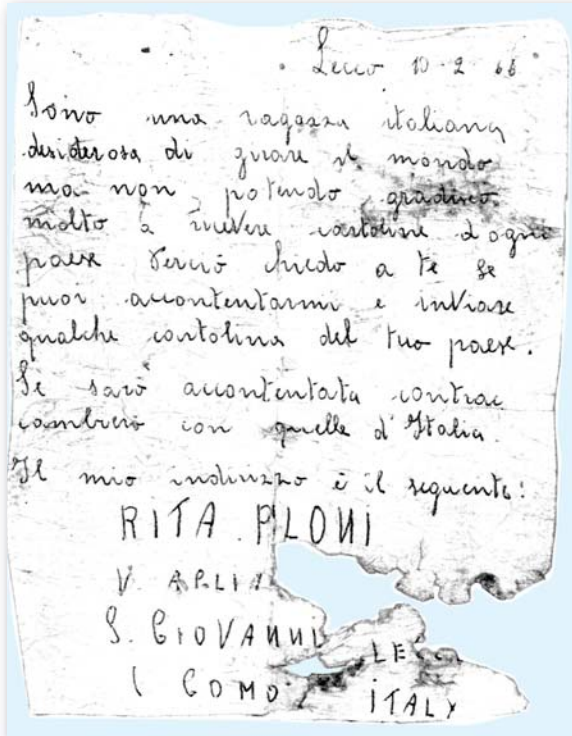 Lecco 10-2 66
Sono una ragazza italiana
desiderosa di girare il mondo
ma non potendo gradisco
molto a ricevere cartoline d'ogni
paese Perciò chiedo a te se
puoi accontentarmi e inviare
qualche cartolina del tuo paese.
Se sarò accontentata contrac
cambierò con quelle d'Italia.
Il mio indirizzo è il seguente:
RITA PLONI
V.
S. GIOVANNI
( COMO
ITALY